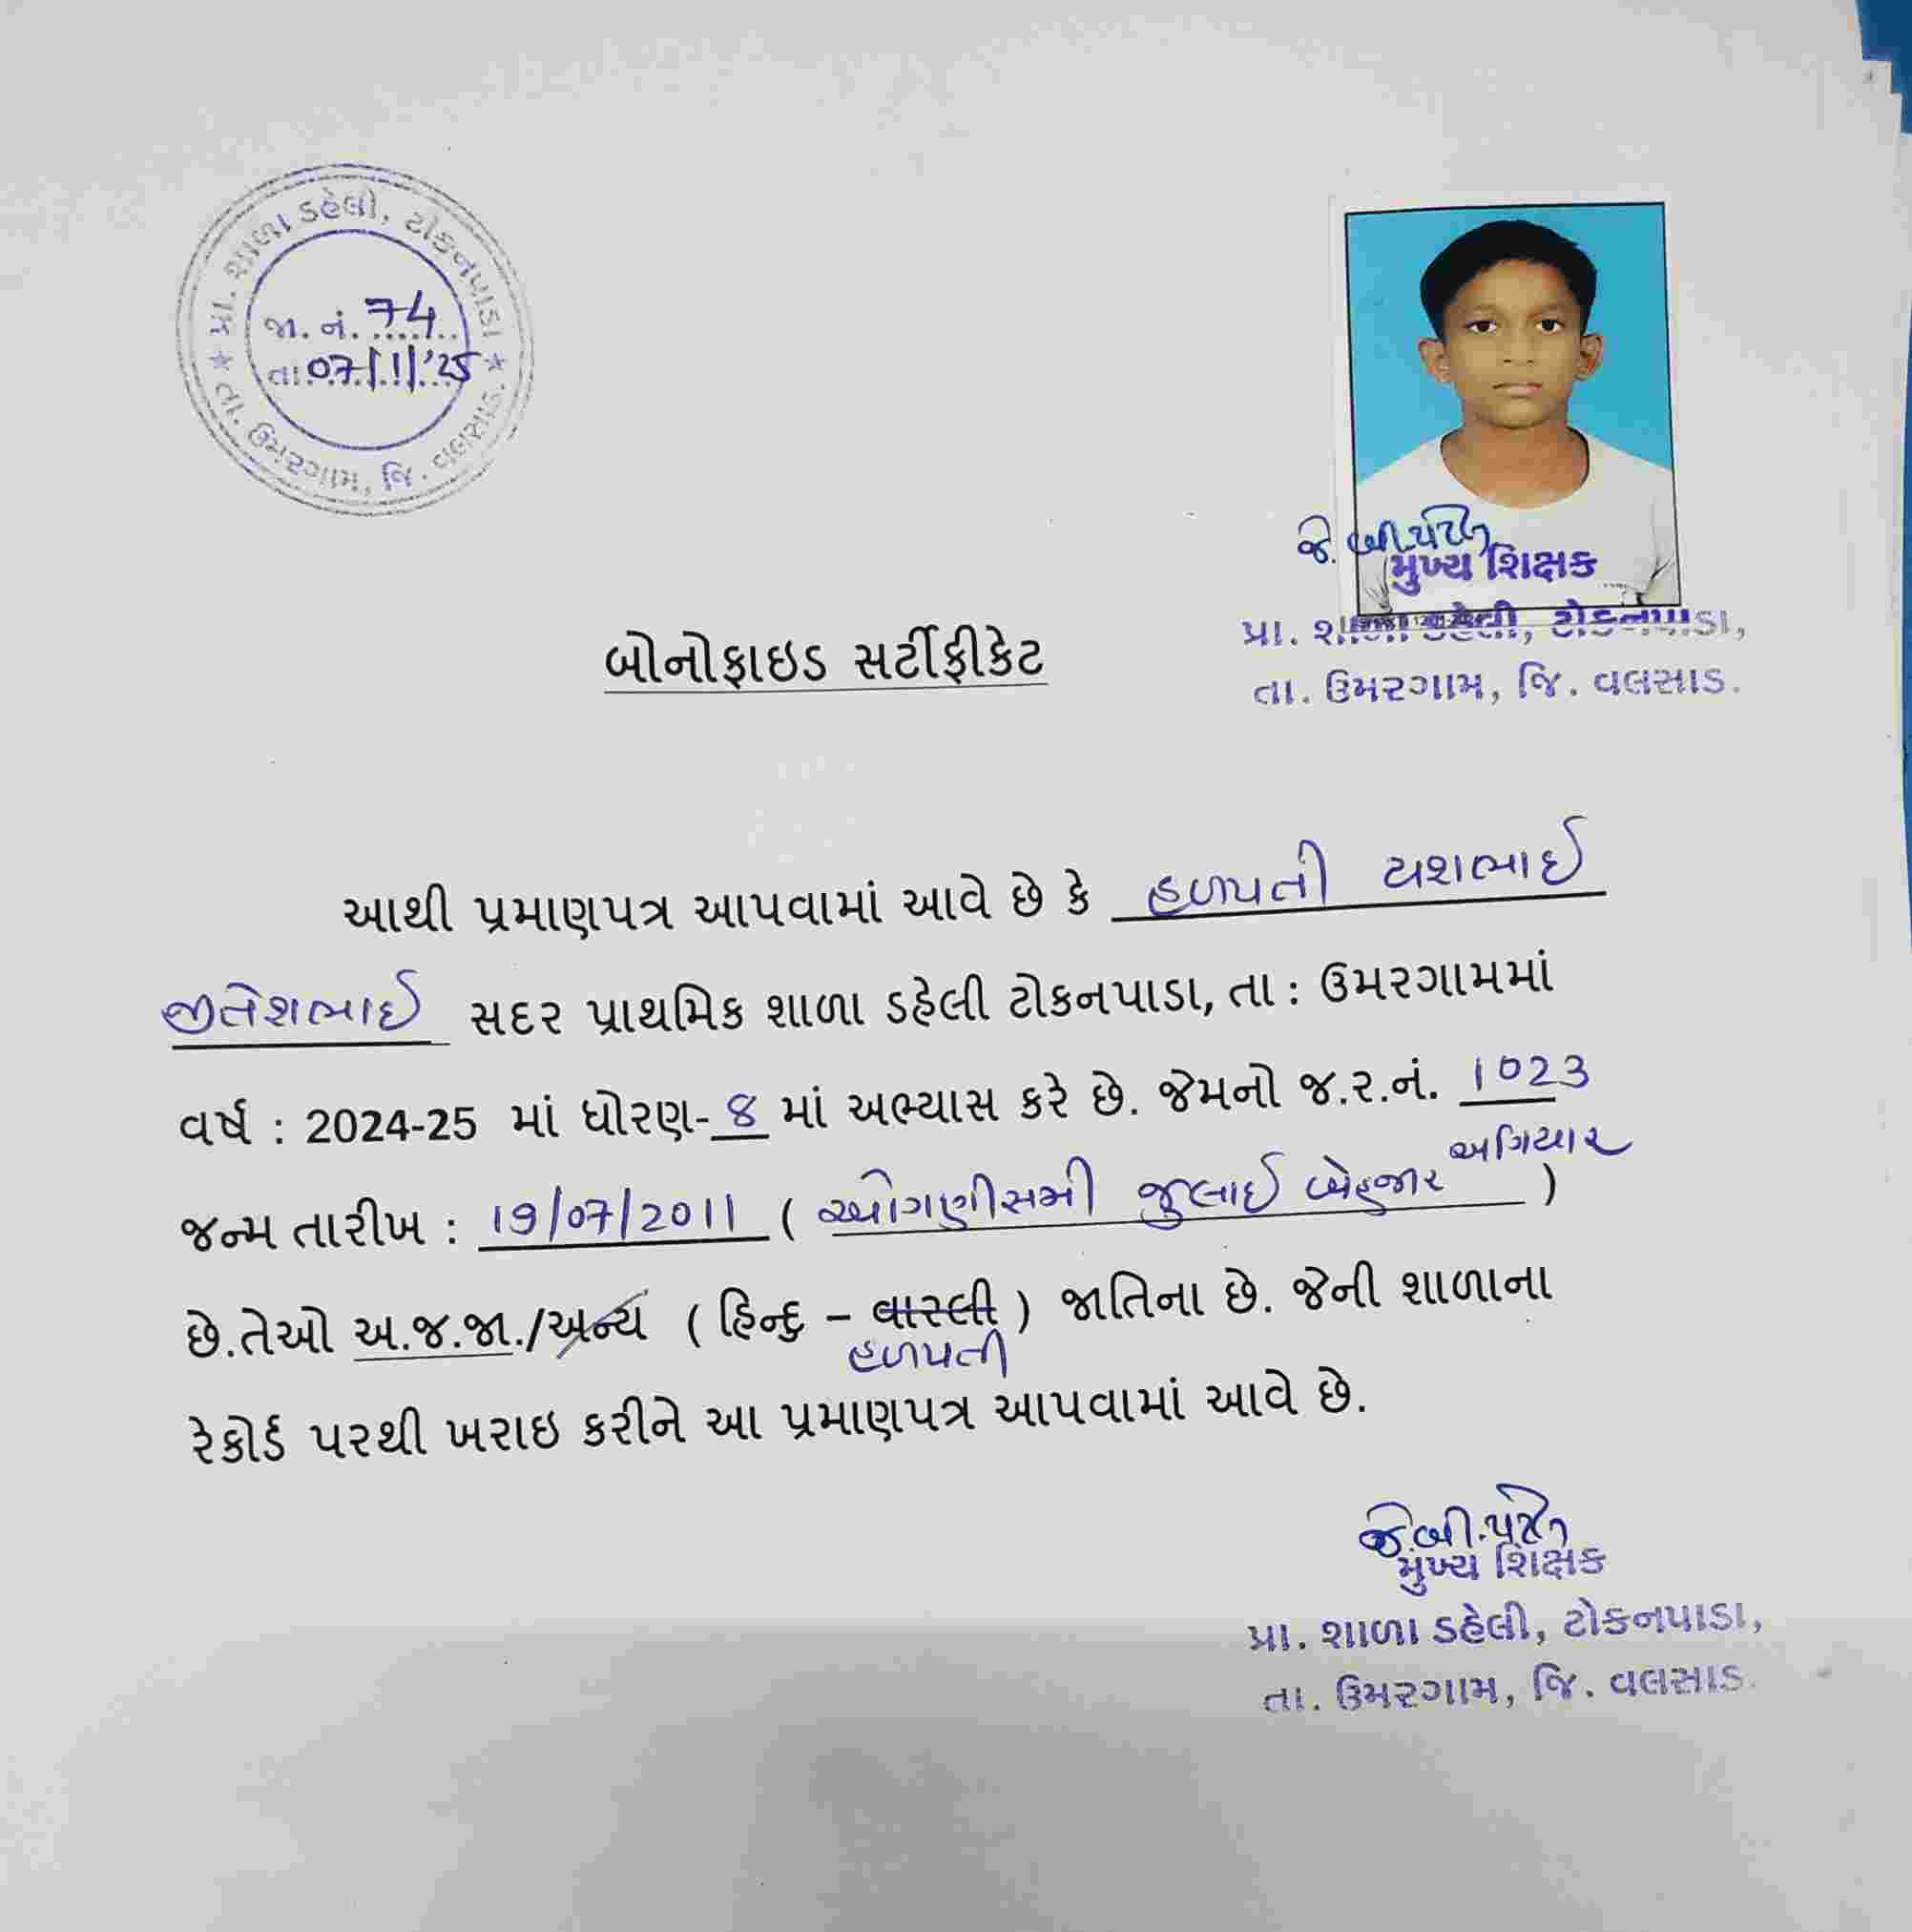 પ્રા. શાળા ડહેલી, ટોકનપાડા
જા. નં. 74
તા. 07/11/'25
તા. ઉમરગામ, જિ. વલસાડ.
જે. બી. પટેલ
મુખ્ય શિક્ષક
પ્રા. શાળા ડહેલી, ટોકનપાડા,
તા. ઉમરગામ, જિ. વલસાડ.
બોનોફાઇડ સર્ટીફીકેટ
આથી પ્રમાણપત્ર આપવામાં આવે છે કે હળપતી યશભાઈ
જીતેશભાઈ સદર પ્રાથમિક શાળા ડહેલી ટોકનપાડા, તા : ઉમરગામમાં
વર્ષ : 2024-25 માં ધોરણ-૪ માં અભ્યાસ કરે છે. જેમનો જ.ર.નં. 1023
જન્મ તારીખ : 19/07/2011 ( ઓગણીસમી જુલાઈ બેહજાર અગિયાર )
છે.તેઓ અ.જ.જા./અન્ય ( હિન્દુ – વારલી ) જાતિના છે. જેની શાળાના
હળપતી
રેકોર્ડ પરથી ખરાઇ કરીને આ પ્રમાણપત્ર આપવામાં આવે છે.
જે.બી.પટેલ
મુખ્ય શિક્ષક
પ્રા. શાળા ડહેલી, ટોકનપાડા,
તા. ઉમરગામ, જિ. વલસાડ.